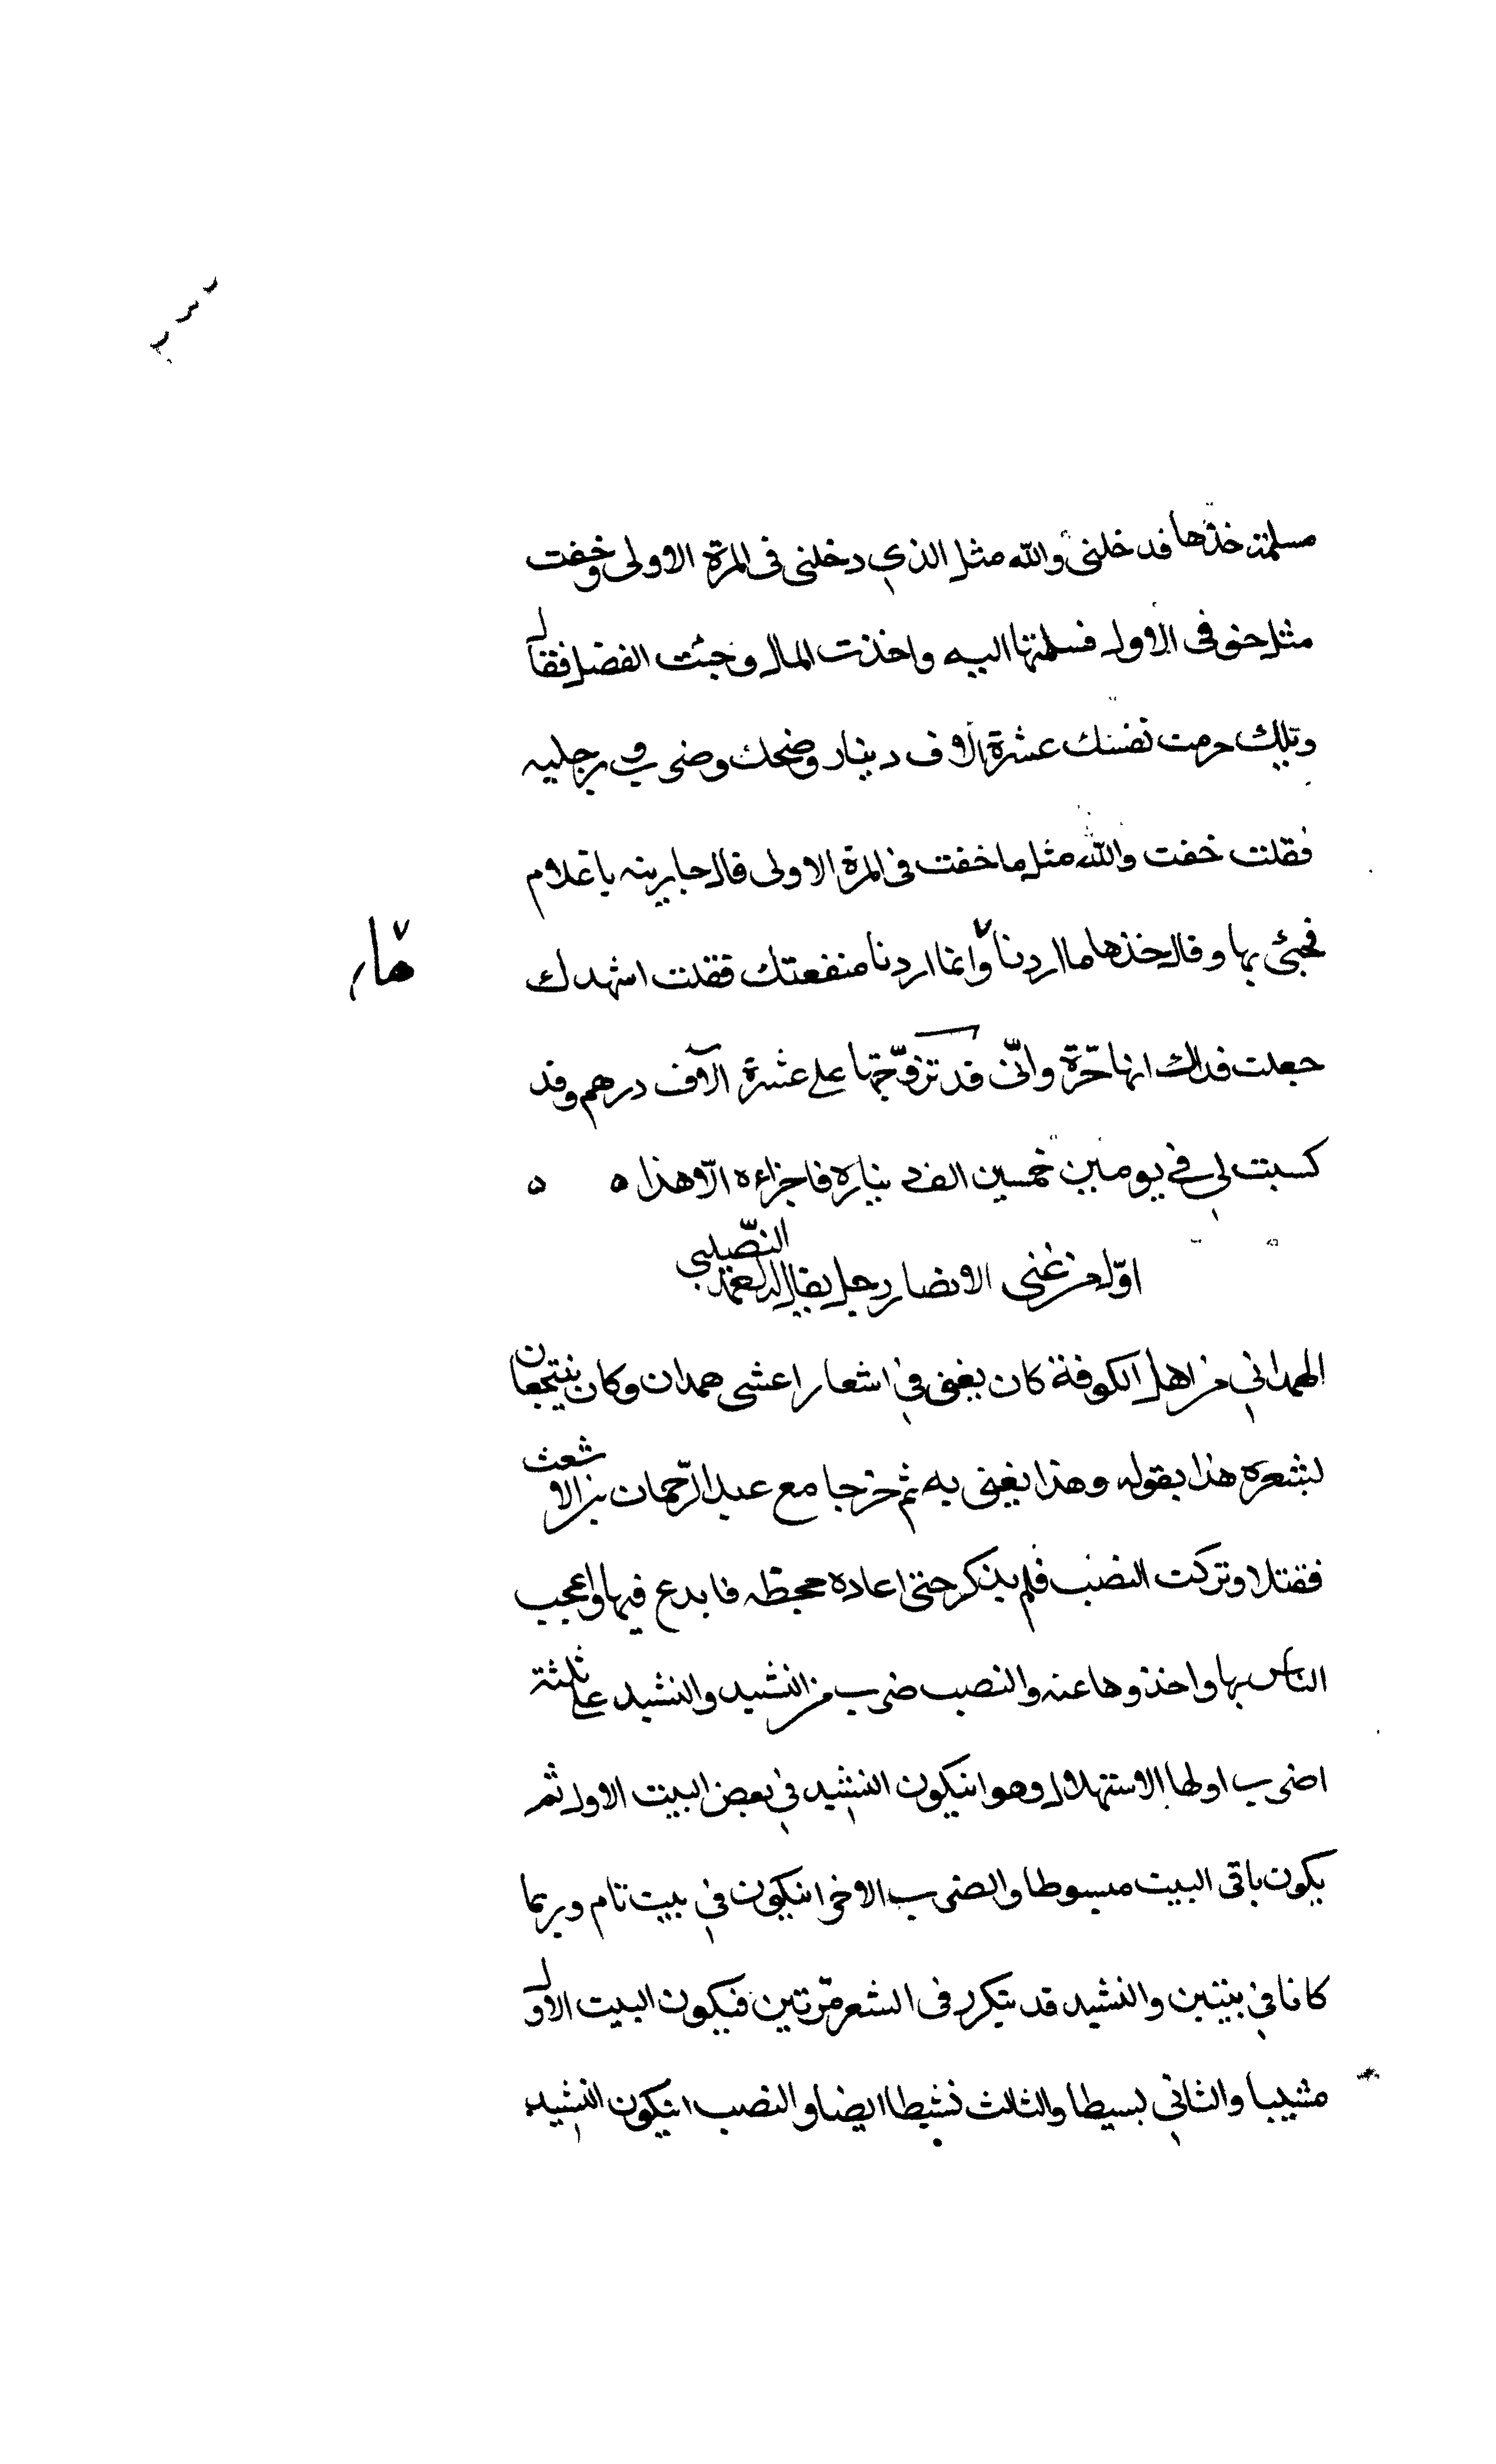 مسلمة خذها فدخلنى والله مثل الذي دخلنى فى المرة الاولى وخفت
مثل خوفى الاول فسلمتها اليه واخذت المال وجئت الفضل فقال
ويلك حرمت نفسك عشرة الاف دينار وضحك وضرب برجليه
فقلت خفت والله مثل ما خفت فى المرة الاولى قال جاريته يا غلام
فجئى بها وقال خذها ما اردنا وانما اردنا منفعتك فقلت اشهدك
ها
جعلت فداك انها حرة وانّى قد تزوّجتها على عشرة الآف درهم وقد
كسبت لي في يومين خمسين الف دينار فما جزاءه الّا هذا ٥ ٥
اوّل من غنى الانصار رجل يقال له النّصيبي
الهمداني من اهل الكوفة كان يغنى في اشعار اعشى همدان وكان ينتجعان
بشعره هذا يقوله وهذا يغنى به ثم خرجا مع عبد الرّحمان بن الاشعث
فقتلا وتركت النصب فلم يذكر حتى اعاده جحظه فابدع فيها واعجب
الناس بها واخذوها عنه والنصب ضرب من النشيد والنشيد على ثلثة
اضرب اولها الاستهلال وهو ان يكون النشيد في بعض البيت الاول ثم
يكون باقى البيت مبسوطا والضرب الاخر ان يكون في بيت تام وربما
كانا في بيتين والنشيد قد يتكرر فى الشعر مرّتين فيكون البيت الاول
مشيدا والثاني بسيطا والثالث نشيطا ايضا والنصب ان يكون النشيد